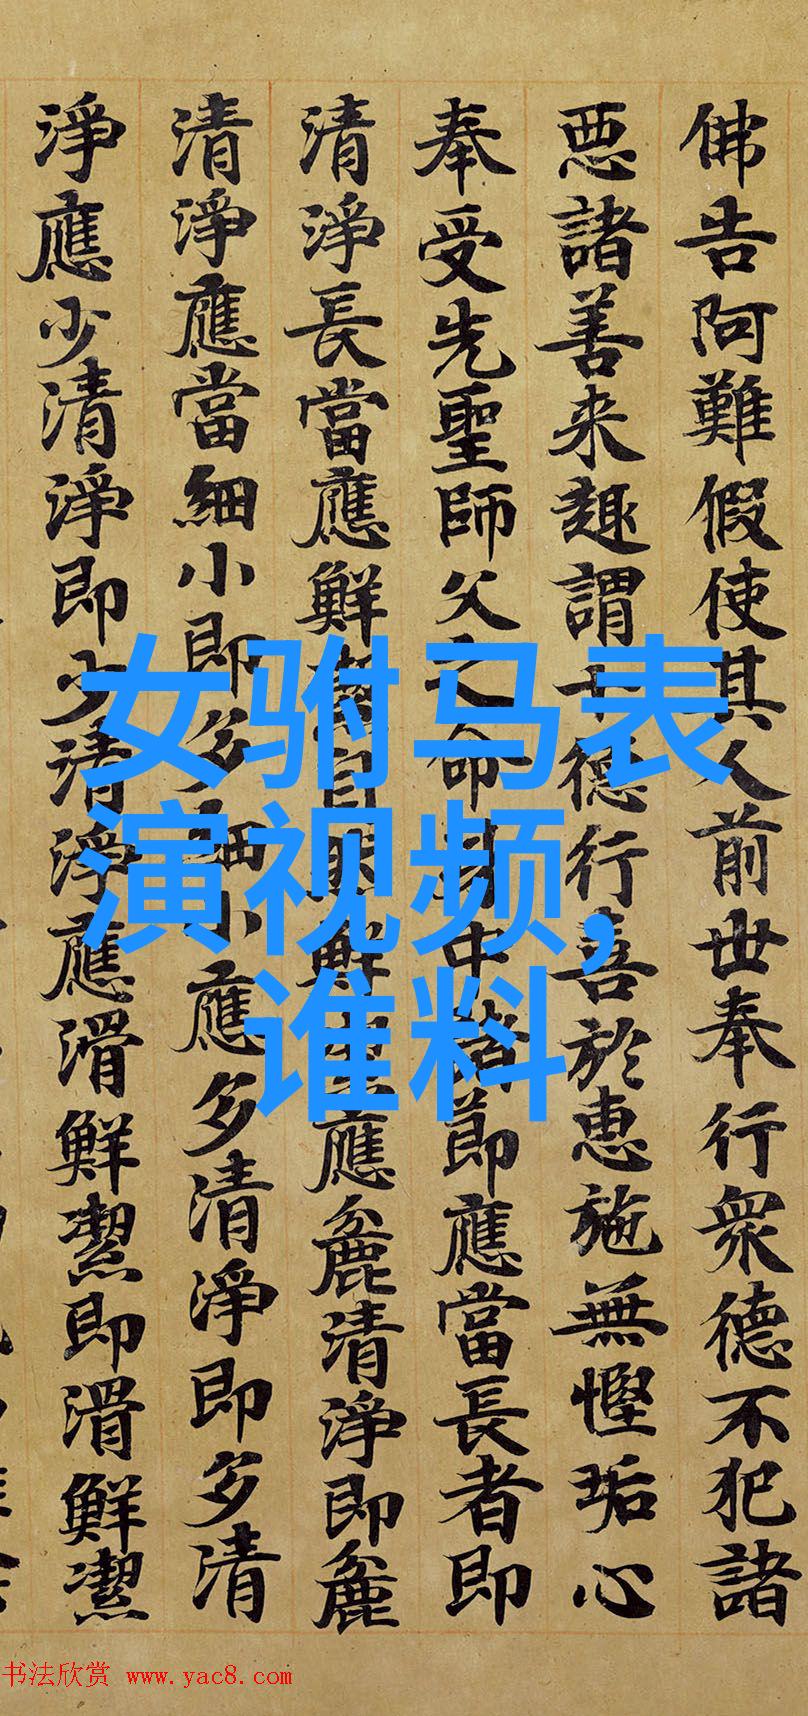 佛告阿難假使其人前世奉行眾德不犯諸
惡諸善来趣謂十德行善於惠施無慳垢心
奉受先聖師父之命身中諸節應當長者即
清淨長當應鮮自鮮應麁清淨即麁
清淨應當細小即多細小應多清淨即多清
淨應少清淨即少清淨應滑鮮潔即滑鮮潔
女驸马表
演视频,
谁料
书法欣赏 www.yac8.com